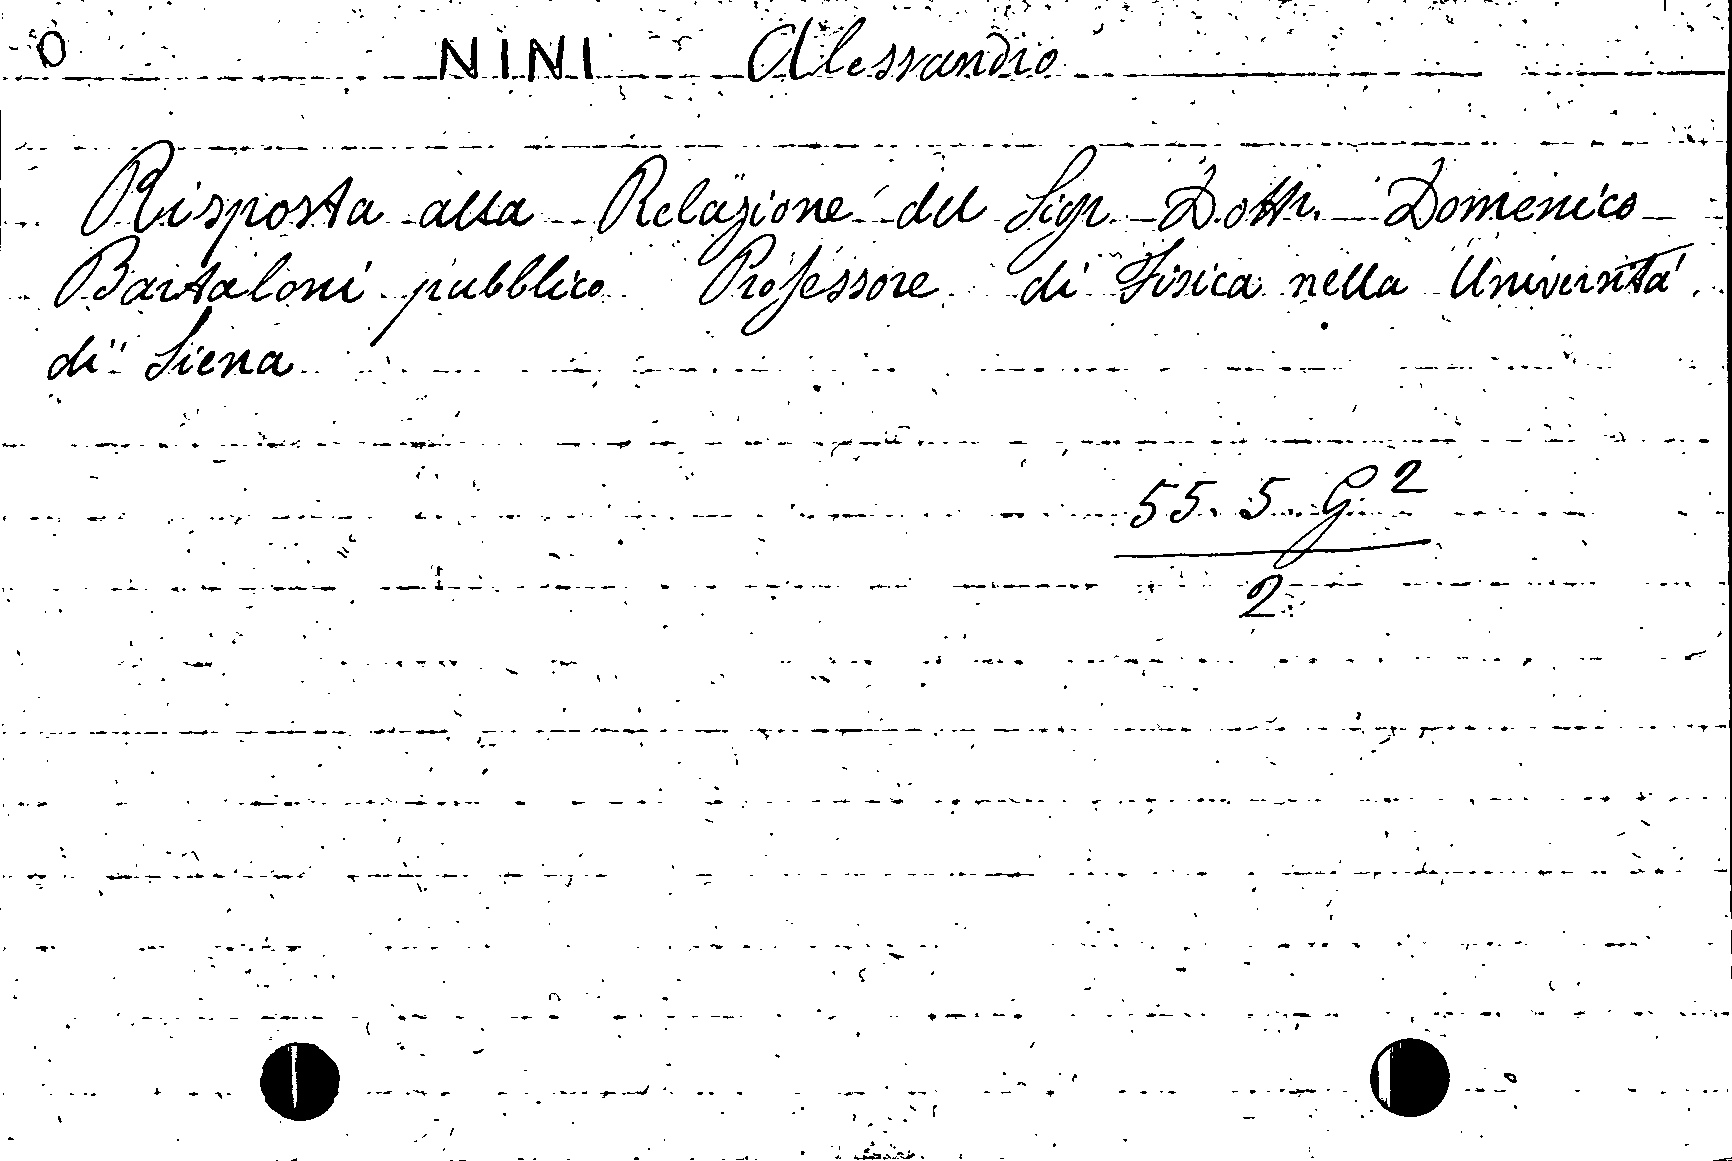 O NINI Alessandro
Risposta alla Relazione del Sigr. Dottr. Domenico
Bartaloni pubblico Professore di Fisica nella Università
di Siena
55. 5. G²
2